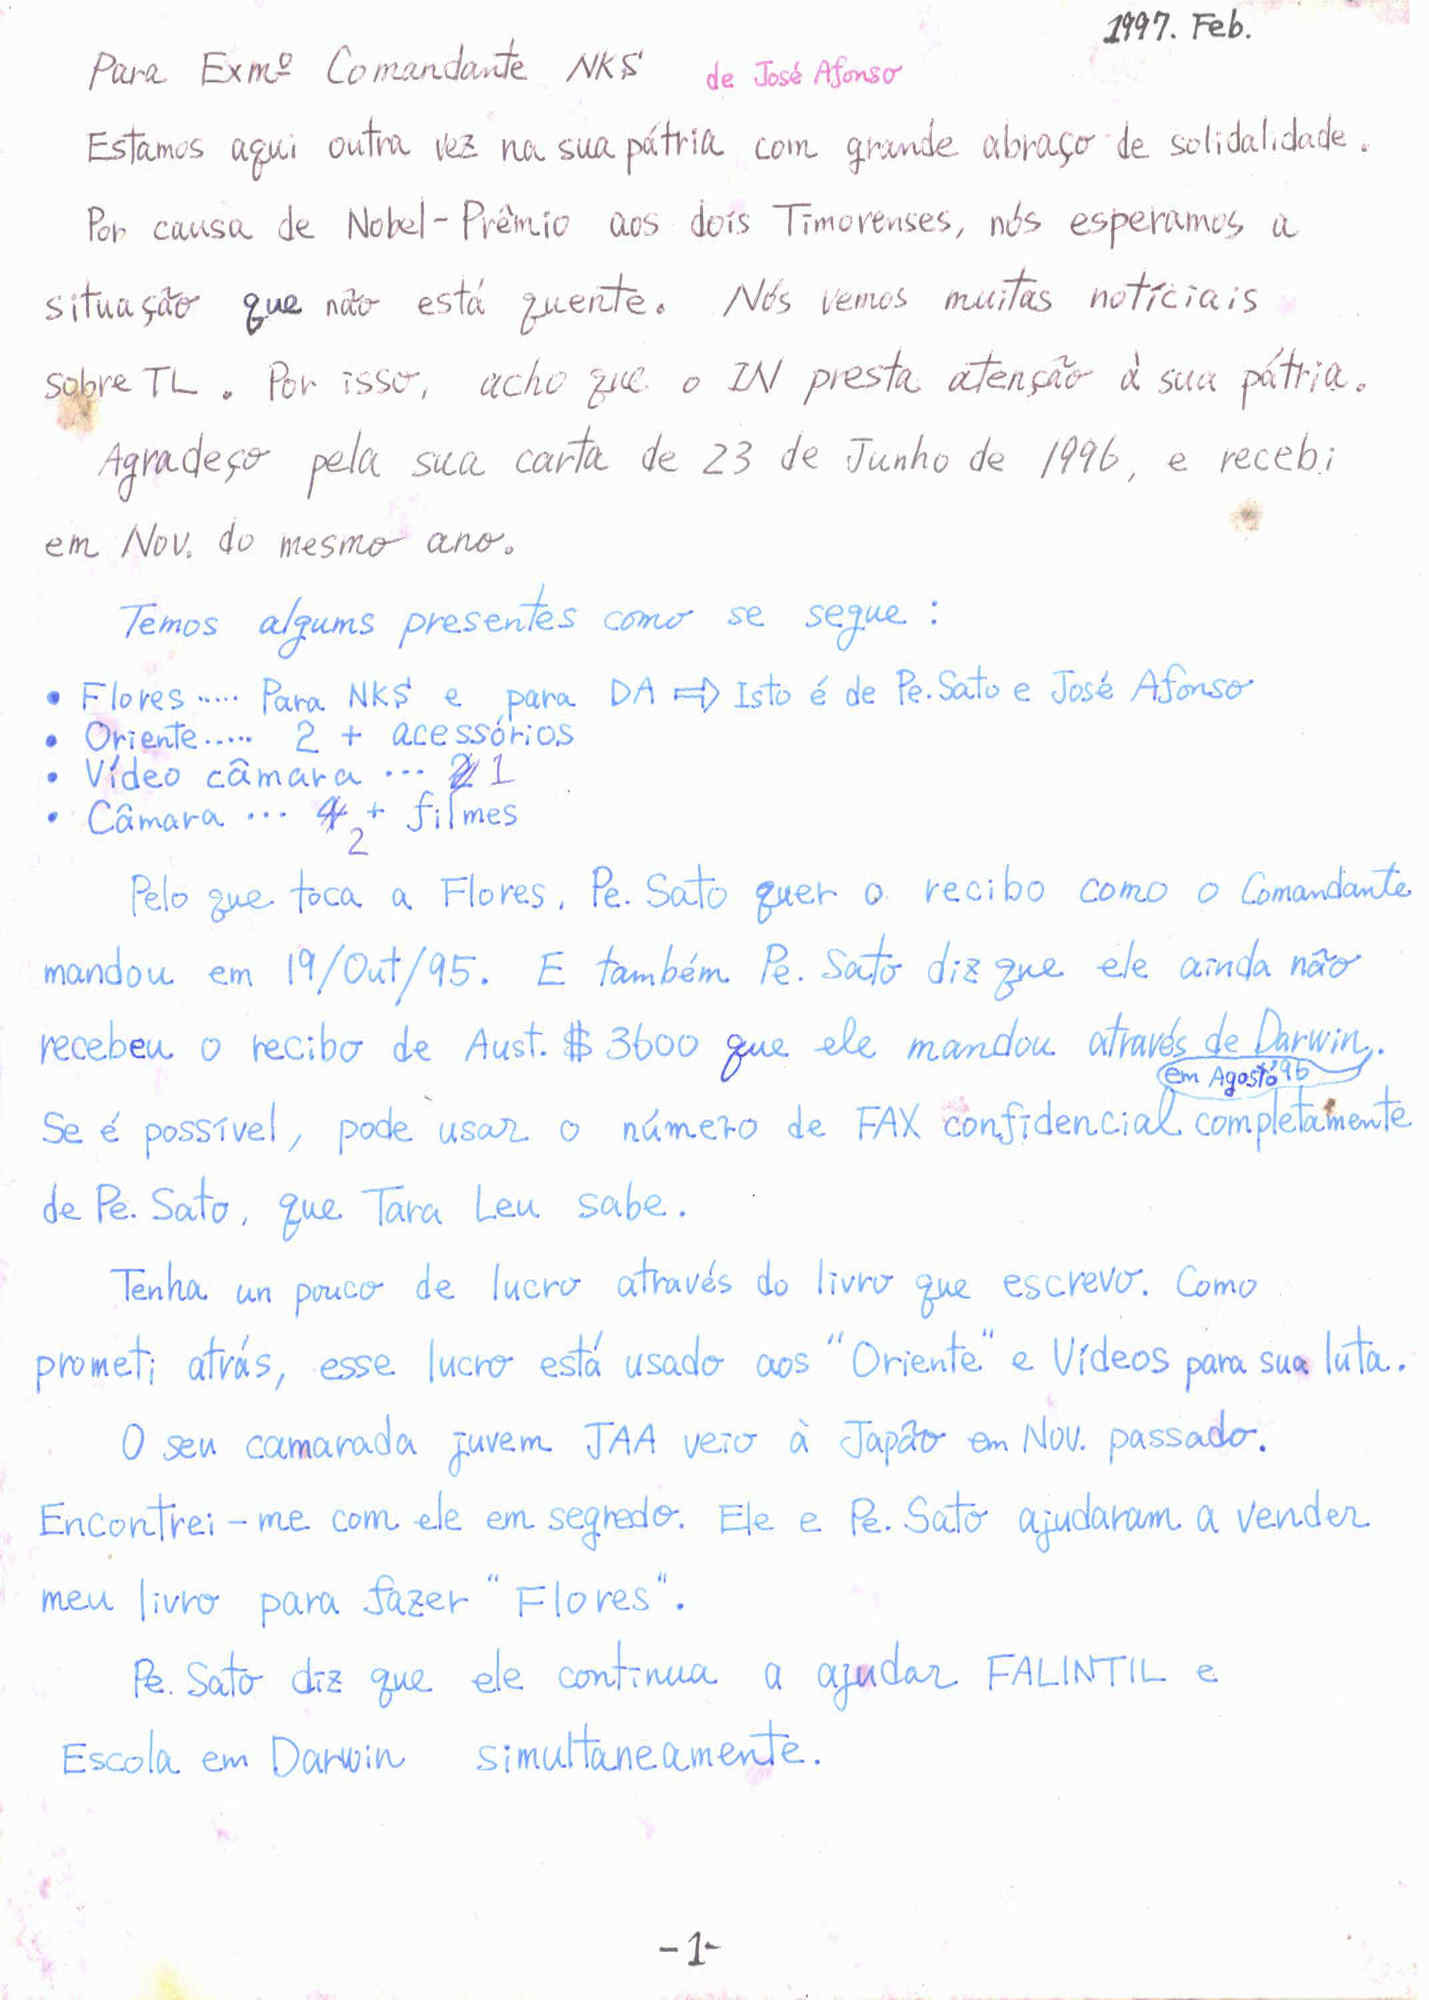 1997. Feb.
Para Exmº Comandante NKS de José Afonso
Estamos aqui outra vez na sua pátria com grande abraço de solidalidade.
Por causa de Nobel-Prêmio aos dois Timorenses, nós esperamos a
situação que não está quente. Nós vemos muitas notíciais
sobre TL. Por isso, acho que o IN presta atenção à sua pátria.
Agradeço pela sua carta de 23 de Junho de 1996, e recebi
em Nov. do mesmo ano.
Temos algums presentes como se segue:
• Flores ..... Para NKS e para DA ⇨ Isto é de Pe. Sato e José Afonso
• Oriente ..... 2 + acessórios
• Vídeo câmara ... 2 1
• Câmara ... 4 2 + filmes
Pelo que toca a Flores, Pe. Sato quer o recibo como o Comandante
mandou em 19/Out/95. E também Pe. Sato diz que ele ainda não
recebeu o recibo de Aust. $ 3600 que ele mandou através de Darwin.
em Agosto '96
Se é possível, pode usar o número de FAX confidencial completamente
de Pe. Sato, que Tara Leu sabe.
Tenha un pouco de lucro através do livro que escrevo. Como
prometi atrás, esse lucro está usado aos "Oriente" e Vídeos para sua luta.
O seu camarada juvem JAA veio à Japão em Nov. passado.
Encontrei-me com ele em segredo. Ele e Pe. Sato ajudaram a vender
meu livro para fazer "Flores".
Pe. Sato diz que ele continua a ajudar FALINTIL e
Escola em Darwin simultaneamente.
-1-